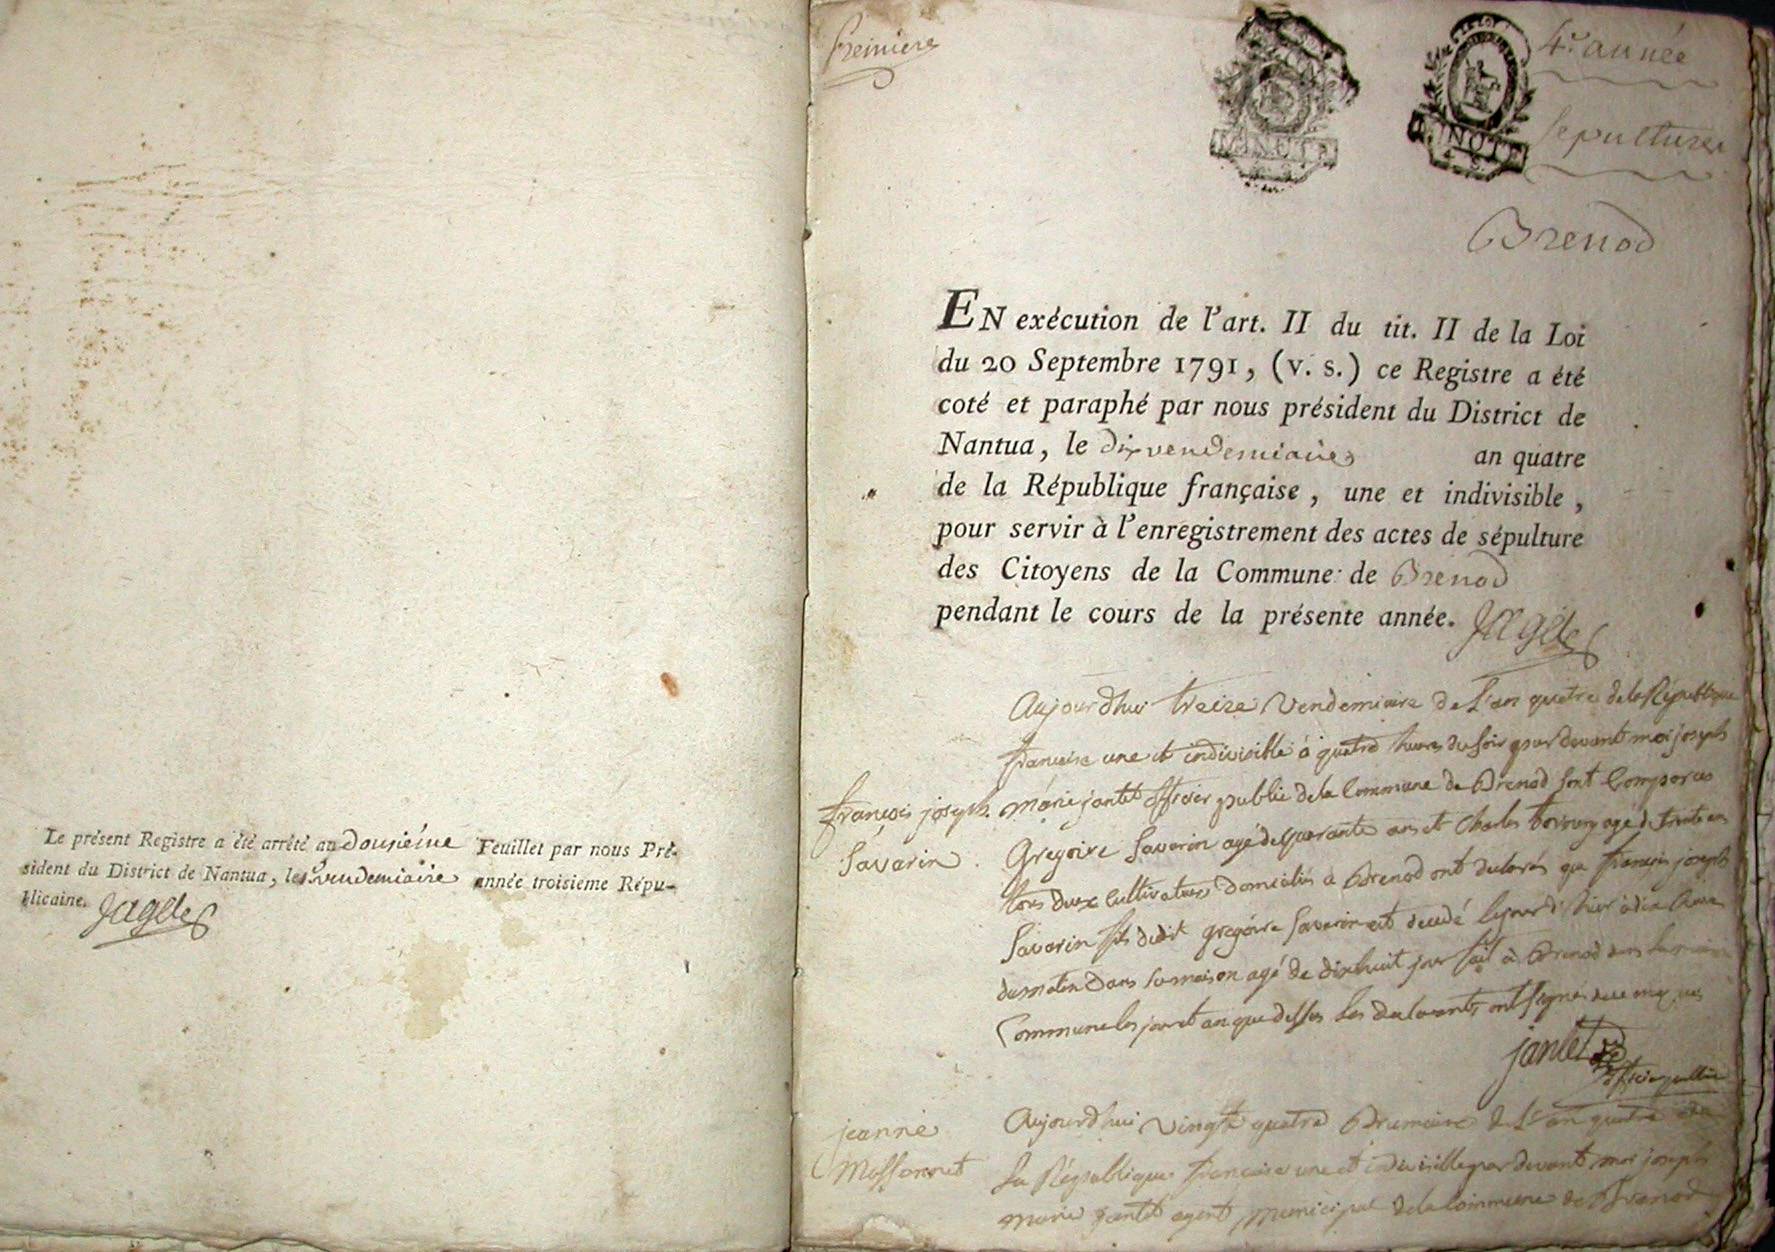 Le présent Registre a été arrêté au Dousiéme Feuillet par nous Pré-
sident du District de Nantua, le vendemiaire année troisieme Répu-
blicaine. Jagett
Premiere
MINUTE
MINUTE
4e. année
Sepultures
Brenod
EN exécution de l'art. II du tit. II de la Loi
du 20 Septembre 1791, (v. s.) ce Registre a été
coté et paraphé par nous président du District de
Nantua, le dix vendemiaire an quatre
de la République française, une et indivisible,
pour servir à l'enregistrement des actes de sépulture
des Citoyens de la Commune de Brenod
pendant le cours de la présente année.
françois joseph
Savarin
Aujourdhui treize Vendemiaire de L'an quatre de la République
francaise une et indivisible à quatre heures du soir par devant moi joseph
marie jantet officier public de la Commune de Brenod sont Comparus
Gregoire Savarin agé de quarante ans et Charles agé de trente ans
tous deux Cultivateurs Domiciliés à Brenod ont declarés que françois joseph
Savarin fils dudit gregoire Savarin est decedé hier à dix heures
du matin Dans sa maison agé de dixhuit jour fait à Brenod dans la maison
Commune les jour et an que dessus les declarants ont signés
jantet
officier public
jeanne
Aujourdhui vingt quatre Brumaire de L'an quatre de
La République francaise une et indivisible par devant moi joseph
marie jantet agent municipal de la Commune de Brenod